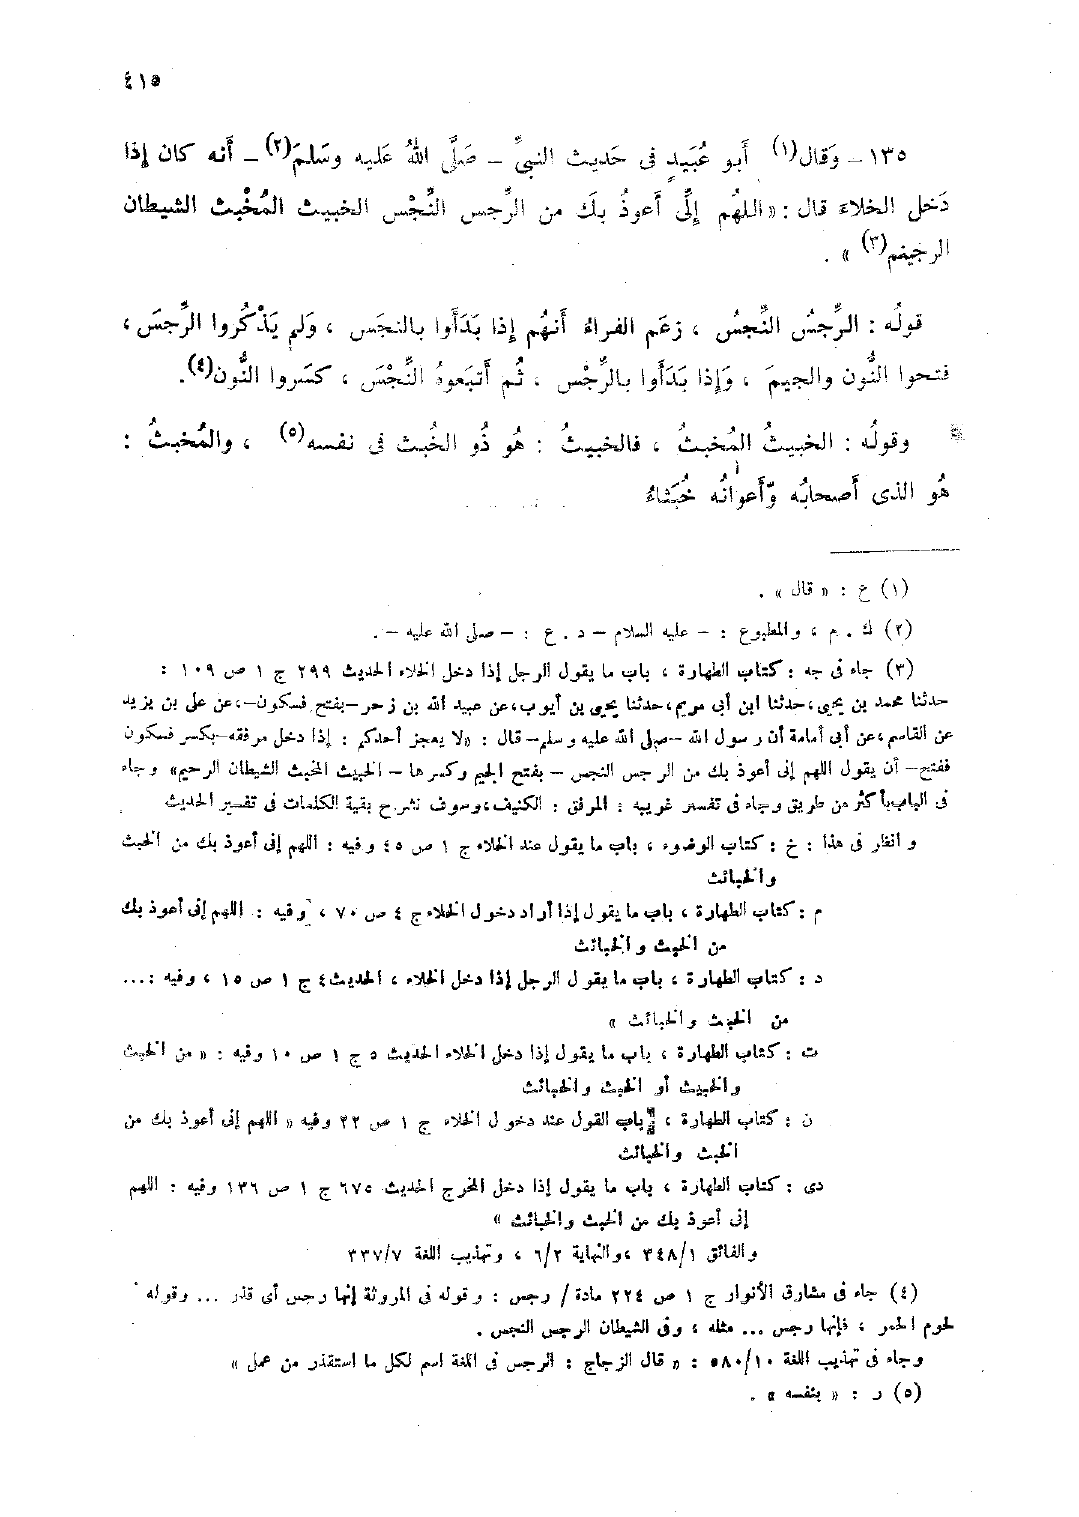 ٤١٥
١٣٥ – وَقال(١) أبو عُبَيدٍ فى حَديث النبىِّ – صَلَّى اللهُ عَليه وسَلمَ(٢) – أَنه كان إذا
دَخل الخلاءَ قال : « اللهُم إنِّى أعوذُ بكَ من الرِّجس النِّجْس الخبيث المُخْبث الشيطان
الرجيم(٣) » .
قولُه : الرِّجسُ النِّجسُ ، زعَم الفراءُ أَنهُم إذا بَدَأوا بالنجَس ، وَلم يَذْكُروا الرِّجسَ ،
فتحوا النُّون والجيمَ ، وَإذا بَدَأوا بالرِّجْس ، ثُم أَتبَعوهُ النِّجْسَ ، كسَروا النُّون(٤).
وقولُه : الخبيثُ المُخبثُ ، فالخبيثُ : هُو ذُو الخُبث فى نفسه(٥) ، والمُخبثُ :
هُو الذى أَصحابُه وَأَعوانُه خُبَثاءُ
(١) ع : « قال » .
(٢) ك . م ، والمطبوع : – عليه السلام – د . ع : – صلى الله عليه – .
(٣) جاء فى جه : كتاب الطهارة ، باب ما يقول الرجل إذا دخل الخلاء الحديث ٢٩٩ ج ١ ص ١٠٩ :
حدثنا محمد بن يحيى ، حدثنا ابن أبى مريم ، حدثنا يحيى بن أيوب ، عن عبيد الله بن زحر –بفتح فسكون– ، عن على بن يزيد
عن القاسم ، عن أبى أمامة أن رسول الله –صلى الله عليه وسلم– قال : «لا يعجز أحدكم : إذا دخل مرفقه –بكسر فسكون
ففتح– أن يقول اللهم إنى أعوذ بك من الرجس النجس – بفتح الجيم وكسرها – الخبيث المخبث الشيطان الرجيم» وجاء
فى الباب بأكثر من طريق وجاء فى تفسير غريبه : المرفق : الكنيف ، وسوف نشرح بقية الكلمات فى تفسير الحديث
وانظر فى هذا : خ : كتاب الوضوء ، باب ما يقول عند الخلاء ج ١ ص ٤٥ وفيه : اللهم إنى أعوذ بك من الخبث
والخبائث
م : كتاب الطهارة ، باب ما يقول إذا أراد دخول الخلاء ج ٤ ص ٧٠ ، وفيه : اللهم إنى أعوذ بك
من الخبث والخبائث
د : كتاب الطهارة ، باب ما يقول الرجل إذا دخل الخلاء ، الحديث ٤ ج ١ ص ١٥ ، وفيه : ...
من الخبث والخبائث »
ت : كتاب الطهارة ، باب ما يقول إذا دخل الخلاء الحديث ٥ ج ١ ص ١٠ وفيه : « من الخبث
والخبيث أو الخبث والخبائث
ن : كتاب الطهارة ، باب القول عند دخول الخلاء ج ١ ص ٢٢ وفيه « اللهم إنى أعوذ بك من
الخبث والخبائث
دى : كتاب الطهارة ، باب ما يقول إذا دخل المخرج الحديث ٦٧٥ ج ١ ص ١٣٦ وفيه : اللهم
إنى أعوذ بك من الخبث والخبائث »
والفائق ٣٤٨/١ ، والنهاية ٦/٢ ، وتهذيب اللغة ٣٣٧/٧
(٤) جاء فى مشارق الأنوار ج ١ ص ٢٢٤ مادة / رجس : وقوله فى الروثة إنها رجس أى قذر ... وقوله
لحوم الحمر ، فإنها رجس ... مثله ، وفى الشيطان الرجس النجس .
وجاء فى تهذيب اللغة ٥٨٠/١٠ : « قال الزجاج : الرجس فى اللغة اسم لكل ما استقذر من عمل »
(٥) ر : « بنفسه » .